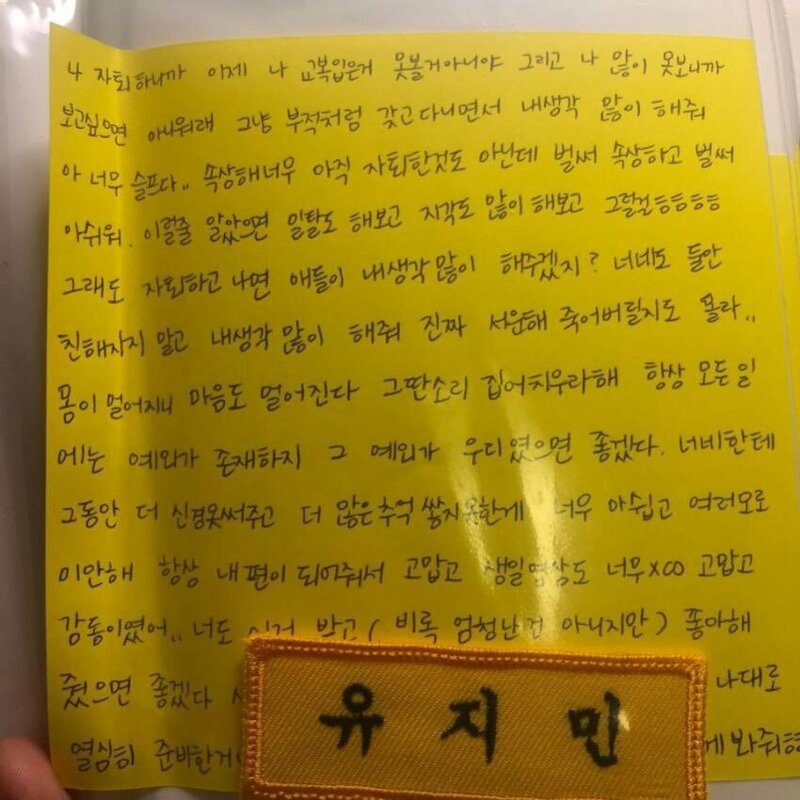 나 자퇴하니까 이제 나 교복입은거 못볼거아니야 그리고 나 많이 못보니까
보고싶으면 아니뭐래 그냥 부적처럼 갖고다니면서 내생각 많이 해줘
아 너무 슬프다.. 속상해너무 아직 자퇴한것도 아닌데 벌써 속상하고 벌써
아쉬워. 이럴줄 알았으면 일탈도 해보고 지각도 많이 해보고 그럴걸ㅎㅎㅎㅎ
그래도 자퇴하고 나면 애들이 내생각 많이 해주겠지? 너네도 둘만
친해지지 말고 내생각 많이 해줘 진짜 서운해 죽어버릴지도 몰라..
몸이 멀어지니 마음도 멀어진다 그딴소리 집어치우라해 항상 모든 일
에는 예외가 존재하지 그 예외가 우리였으면 좋겠다. 너네한테
그동안 더 신경못써주고 더 많은 추억 쌓지못한게 너무 아쉽고 여러모로
미안해 항상 내 편이 되어줘서 고맙고 생일영상도 너무x00 고맙고
감동이였어.. 너도 이거 받고 (비록 엄청난건 아니지만) 좋아해
줬으면 좋겠다 나대로
열심히 준비한거 봐줘ㅎㅎ
유지민